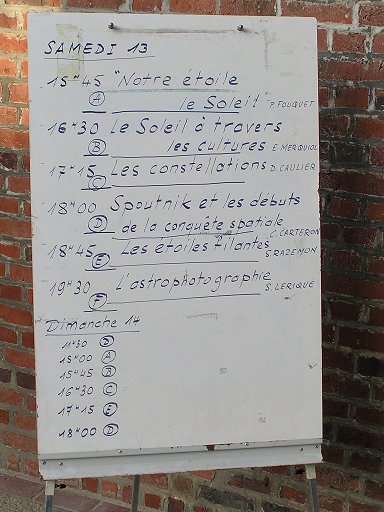 SAMEDI 13
15H45 "Notre étoile
A le Soleil" P. FOUQUET
16H30 Le Soleil à travers
B les cultures E. MERQUIOL
17H15 Les constellations D. CAULIER
C
18H00 Spoutnik et les débuts
D de la conquête spatiale
C. CARTERON
18H45 E Les étoiles filantes
S. RAZEMON
19H30 L'astrophotographie
F S. LERIQUE
Dimanche 14
11H30 D
15H00 A
15H45 B
16H30 C
17H15 E
18H00 D